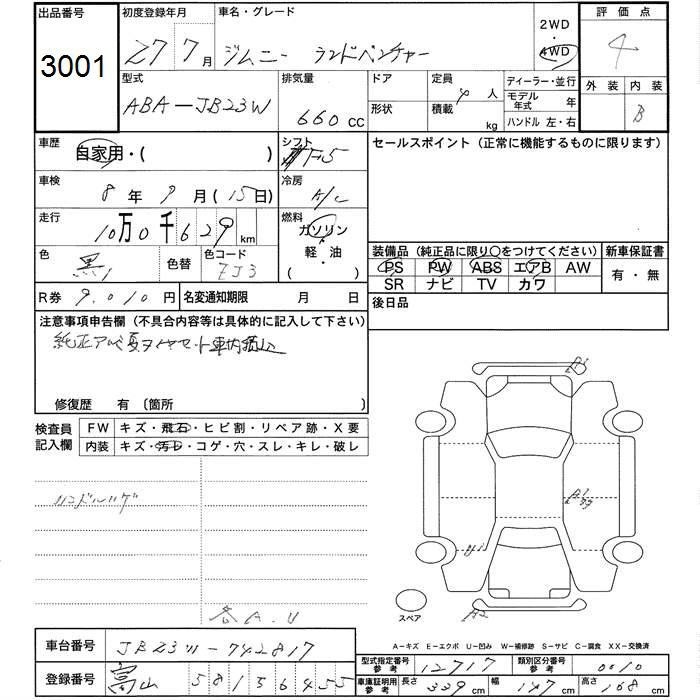 出品番号 初度登録年月 車名・グレード 2WD 評価点
3001 27 7月 ジムニー ランドベンチャー 4WD 4
型式 排気量 ドア 定員 ディーラー・並行 外装 内装
ABA-JB23W 660cc 形状 4人 モデル年式 年 B
積載 kg ハンドル 左・右
車歴 自家用・( ) シフト F5 セールスポイント (正常に機能するものに限ります)
車検 8年9月(15日) 冷房 A/C
走行 10万0千629km 燃料 ガソリン
軽・油
( )
色 黒 色替 色コード ZJ3
装備品 (純正品に限り○をつけてください) 新車保証書
PS PW ABS エアB AW 有・無
SR ナビ TV カワ
R券 9,010円 名変通知期限 月 日 後日品
注意事項申告欄 (不具合内容等は具体的に記入して下さい)
純正アルミ夏タイヤセット車内積込
修復歴 有 [箇所 ]
検査員記入欄 FW キズ・飛石・ヒビ割・リペア跡・X要
内装 キズ・汚レ・コゲ・穴・スレ・キレ・破レ
ハンドルハゲ
各A.U
A1
A1
U1
A2
スペア
A-キズ E-エクボ U-凹み W-補修跡 S-サビ C-腐食 XX-交換済
車台番号 JB23W-742817
型式指定番号 参考 12717 類別区分番号 参考 0010
登録番号 富山 581 す 6455
車庫証明用 参考 長さ 339cm 幅 147cm 高さ 168cm